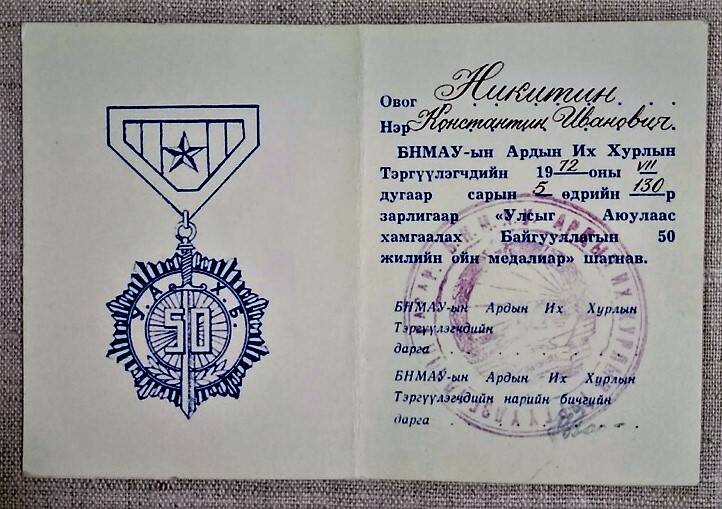 У.А.Х.Б.
50
Овог Никитин
Нэр Константин Иванович.
БНМАУ-ын Ардын Их Хурлын
Тэргүүлэгчдийн 1972 -оны VII
дугаар сарын 5 өдрийн 130 -р
зарлигаар «Улсыг Аюулаас
хамгаалах Байгууллагын 50
жилийн ойн медалиар» шагнав.
БНМАУ-ын Ардын Их Хурлын
Тэргүүлэгчдийн
дарга
БНМАУ-ын Ардын Их Хурлын
Тэргүүлэгчдийн нарийн бичгийн
дарга
АРДЫН ИХ ХУРЛЫН